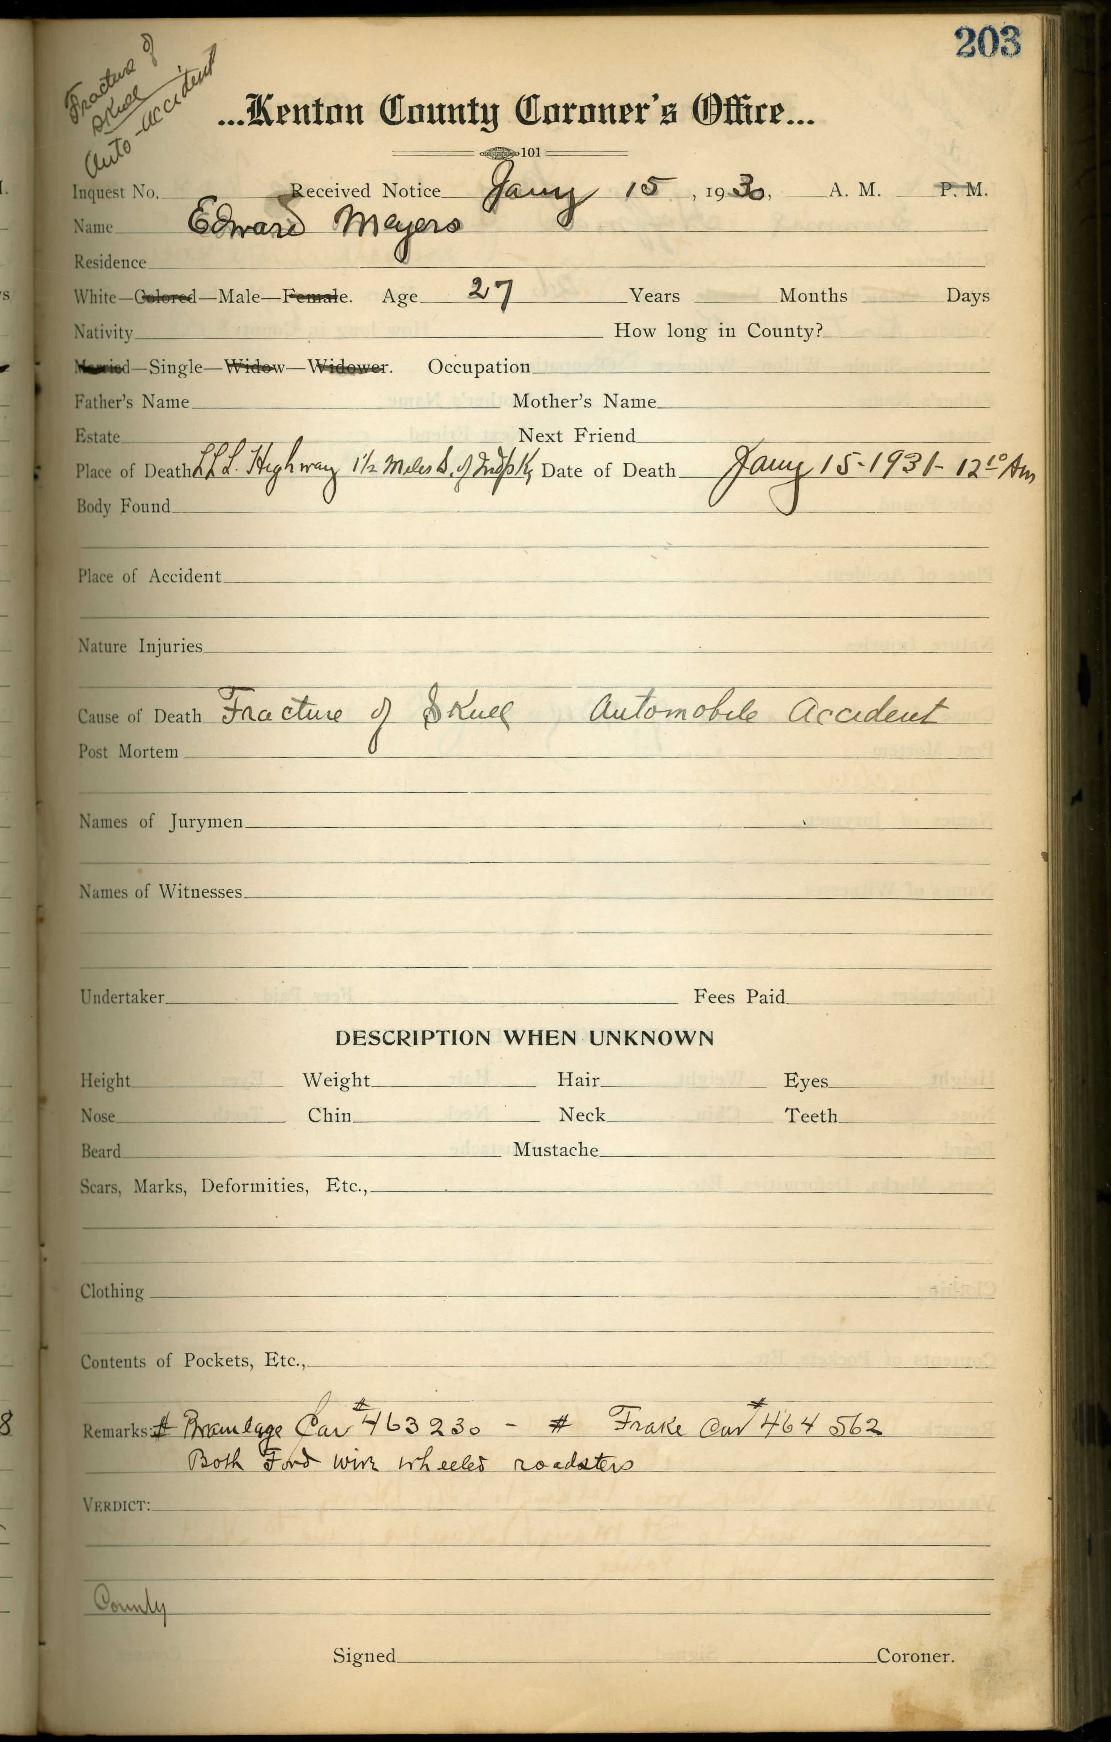 203
Fracture of
Skull
Auto-Accident
...Kenton County Coroner's Office...
101
Inquest No. Received Notice Jany 15, 1930, A. M. P. M.
Name Edward Meyers
Residence
White—Colored—Male—Female. Age 27 Years Months Days
Nativity How long in County?
Married—Single—Widow—Widower. Occupation
Father's Name Mother's Name
Estate Next Friend
Place of Death LLL Highway 1½ Miles S. of Indp Ky Date of Death Jany 15-1931- 12 10 Am
Body Found
Place of Accident
Nature Injuries
Cause of Death Fracture of Skull Automobile Accident
Post Mortem
Names of Jurymen
Names of Witnesses
Undertaker Fees Paid
DESCRIPTION WHEN UNKNOWN
Height Weight Hair Eyes
Nose Chin Neck Teeth
Beard Mustache
Scars, Marks, Deformities, Etc.,
Clothing
Contents of Pockets, Etc.,
Remarks: # Bramlage Car #463230 - # Frake Car #464562
Both Ford wire wheeled roadsters
VERDICT:
County
Signed Coroner.